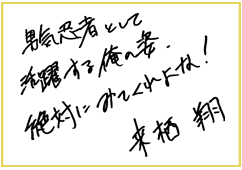 男気忍者として
活躍する俺の姿.
絶対にみてくれよな!
来栖 翔